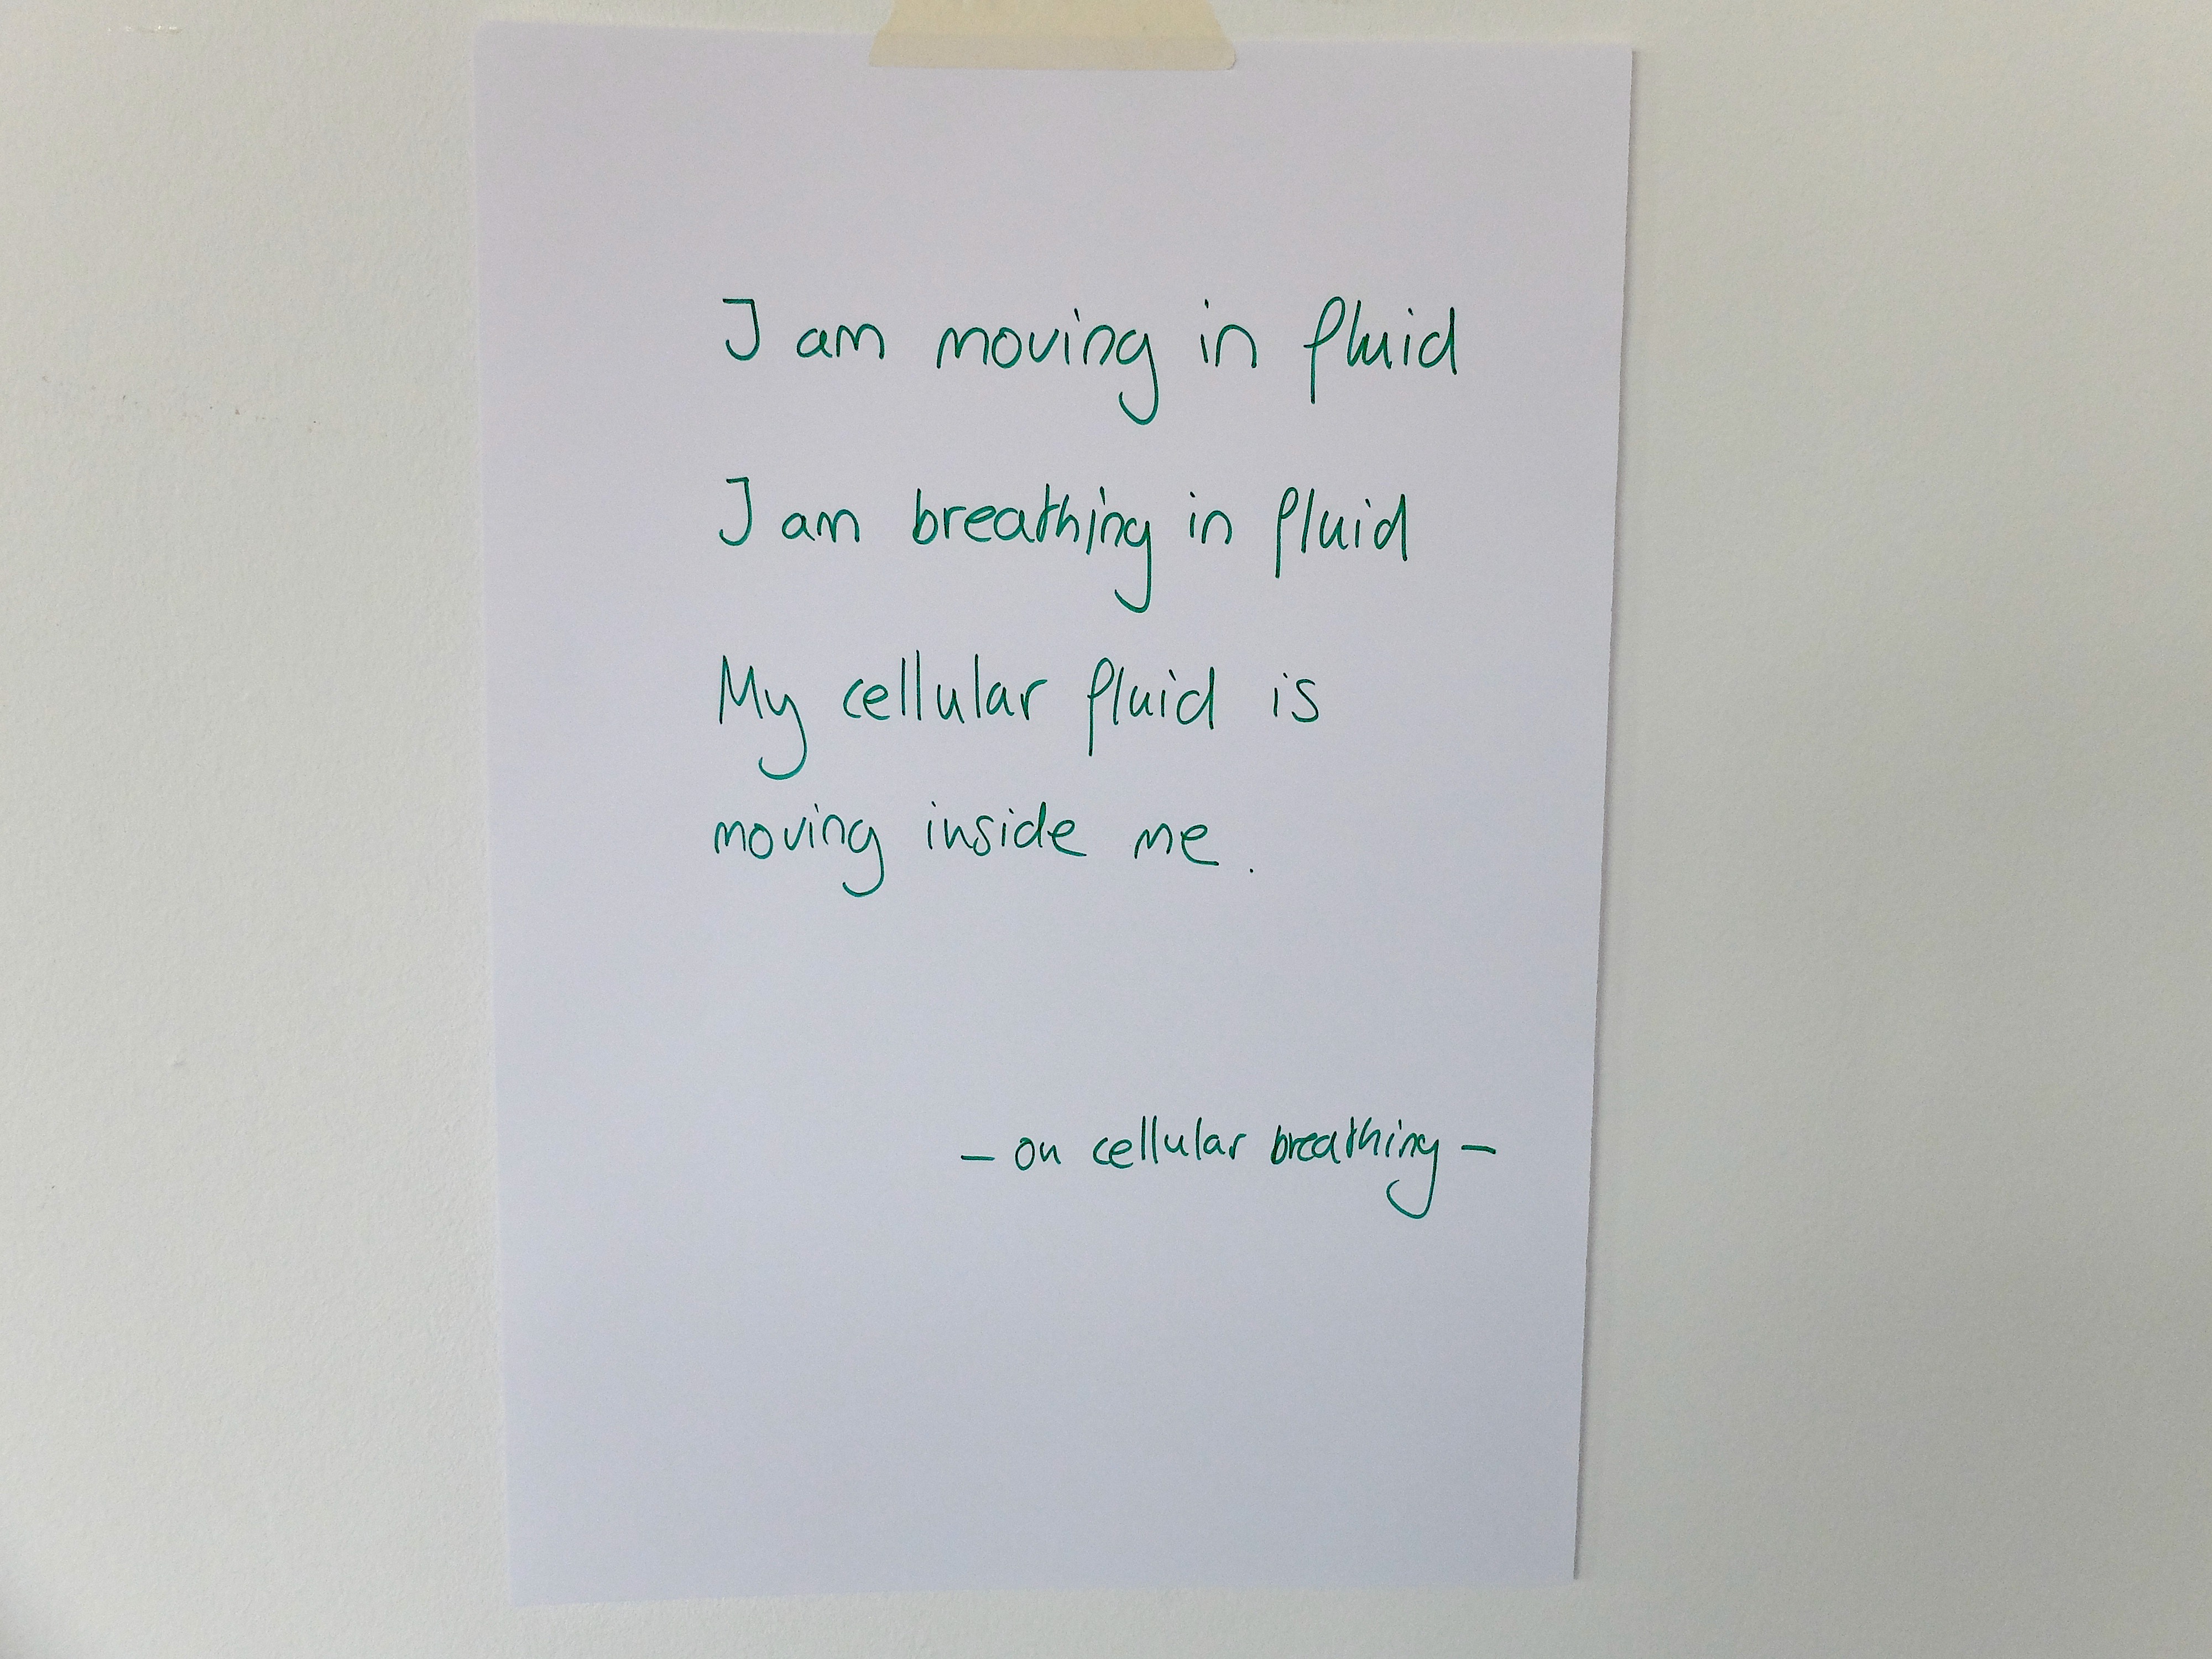 I am moving in fluid
I am breathing in fluid
My cellular fluid is
moving inside me.
– on cellular breathing –